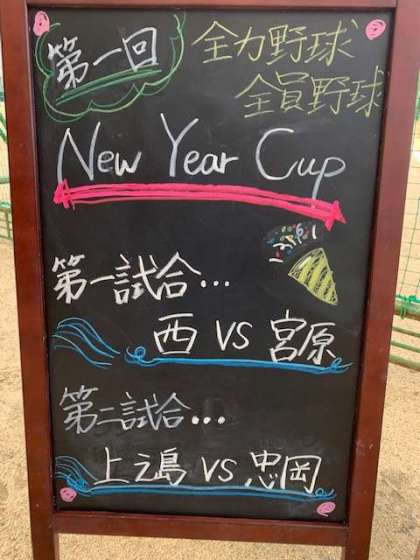 第一回
全力野球
全員野球
New Year Cup
第一試合...
西 VS 宮原
第二試合...
上之島 VS 忠岡